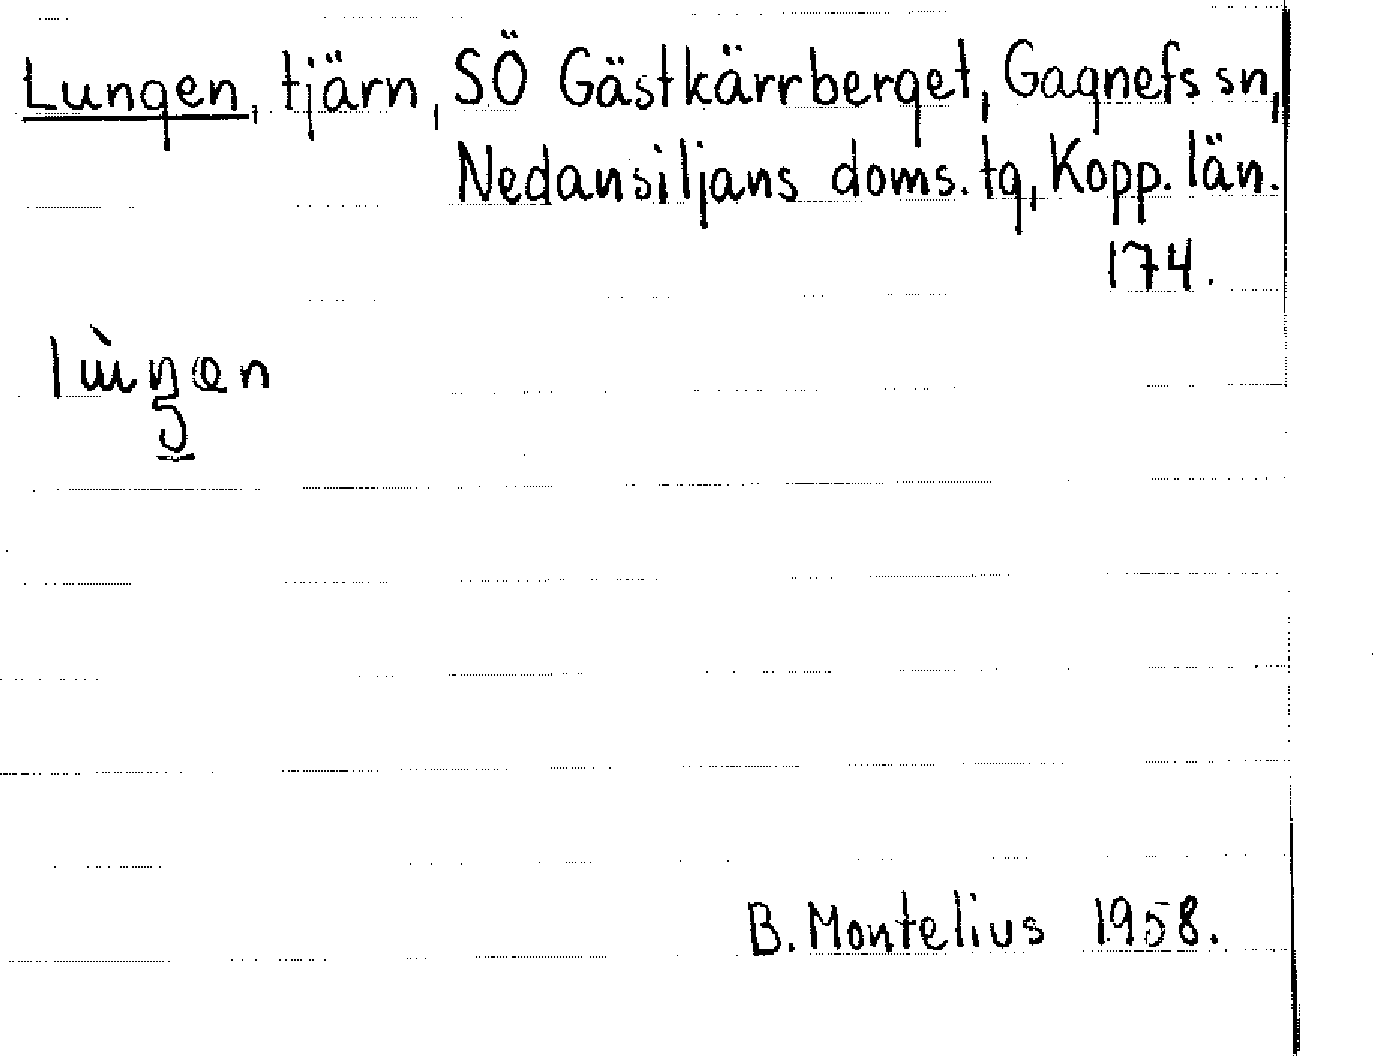 Lungen, tjärn, SÖ Gästkärrberget, Gagnefs sn,
Nedansiljans doms. tg, Kopp. län.
174.
B. Montelius 1958.